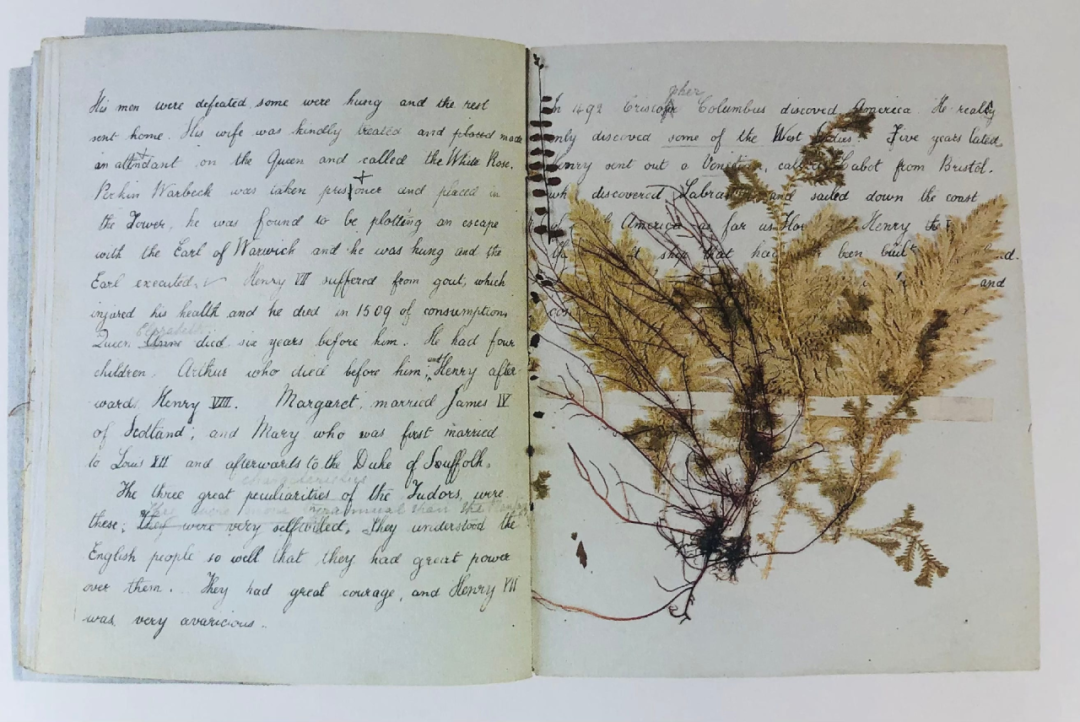 His men were defeated some were hung and the rest
sent home. His wife was kindly treated and placed made
an attendant on the Queen and called the White Rose.
Perkin Warbeck was taken prestoner and placed in
the Tower, he was found to be plotting an escape
with the Earl of Warwick and he was hung and the
Earl executed. Henry VII suffered from gout, which
injured his health and he died in 1509 of consumption
Elizabeth
Queen Anne died six years before him. He had four
children, Arthur who died before him; and Henry after
wards Henry VIII. Margaret, married James IV
of Scotland; and Mary who was first married
to Louis XII and afterwards to the Duke of Souffolk.
characteristics
The three great peculiarities of the Tudors, were
They were more tyrannical than the
these; They were very selfwilled, They understood the
English people so well that they had great power
over them. They had great courage, and Henry VII
was very avaricious.
pher
In 1492 Cristofer Columbus discoved America. He really
only discoved some of the West Indies. Five years lated
Henry sent out a Venetian, called Cabot from Bristol.
who discovered Labrador and sailed down the coast
America as far as Henry the
ship that had been built
and